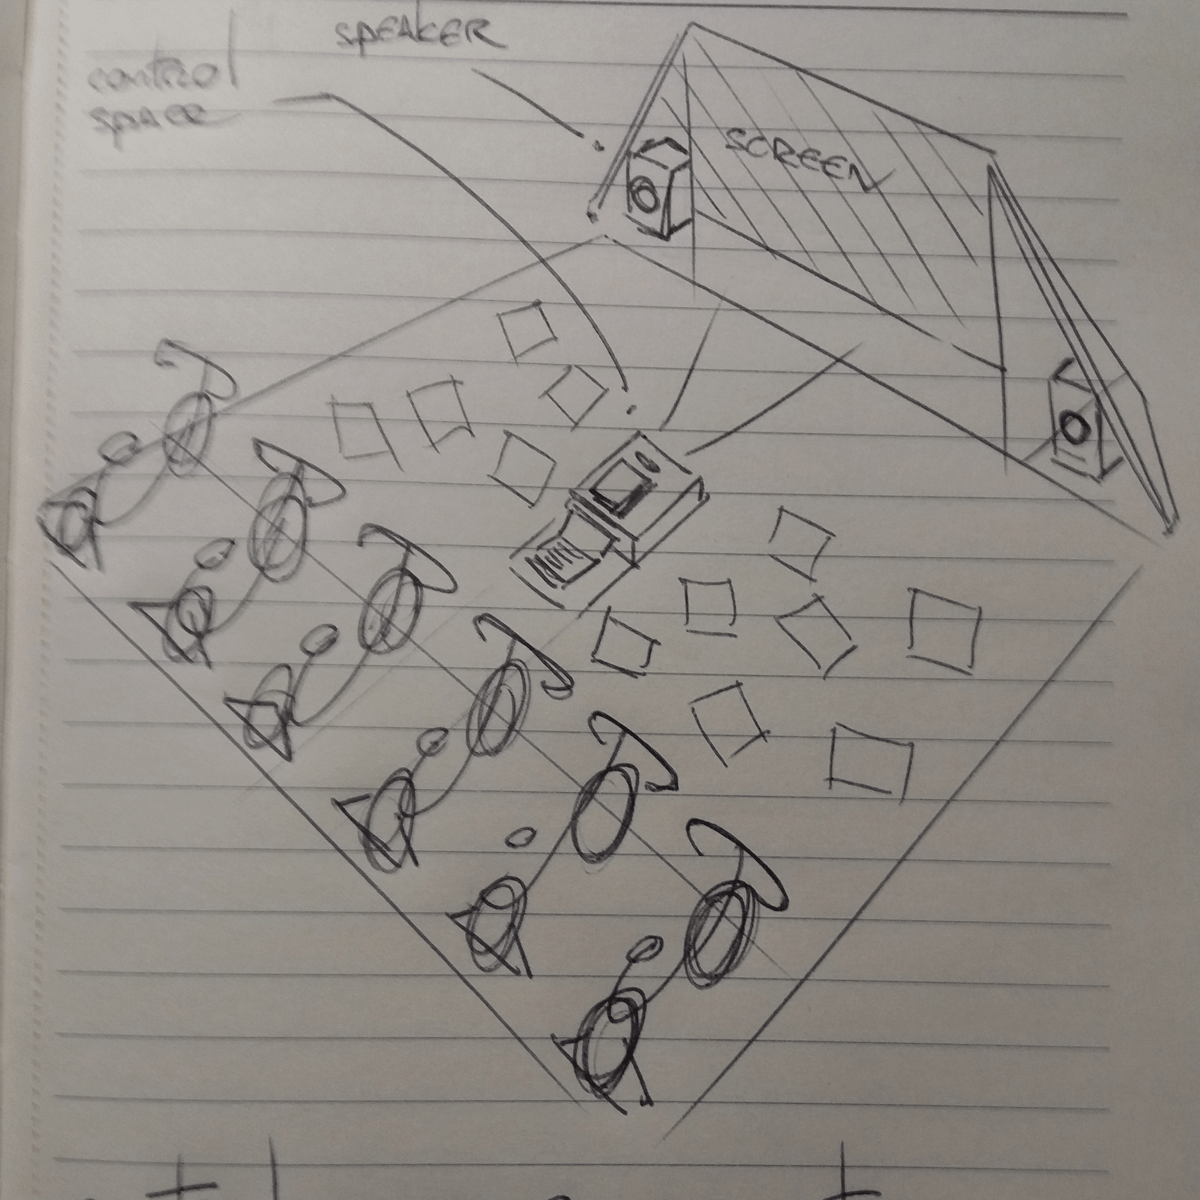 SPEAKER
control
space
SCREEN